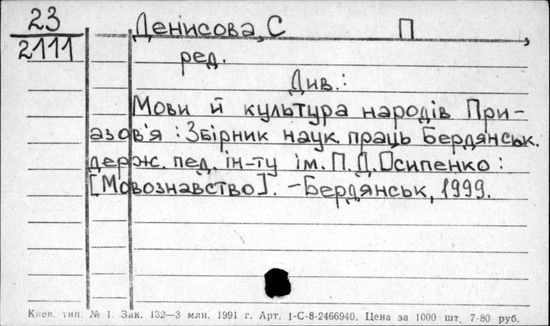 23
2111
Денисова, С П ,
ред.
Див.:
Мови й культура народів При-
азов'я : Збірник наук. праць Бердянськ.
держ. пед. ін-ту ім. П.Д.Осипенко :
[Мовознавство]. -Бердянськ, 1999.
Киев. тип. № 1. Зак. 132—3 млн. 1991 г. Арт. 1-С-8-2466940. Цена за 1000 шт. 7-80 руб.